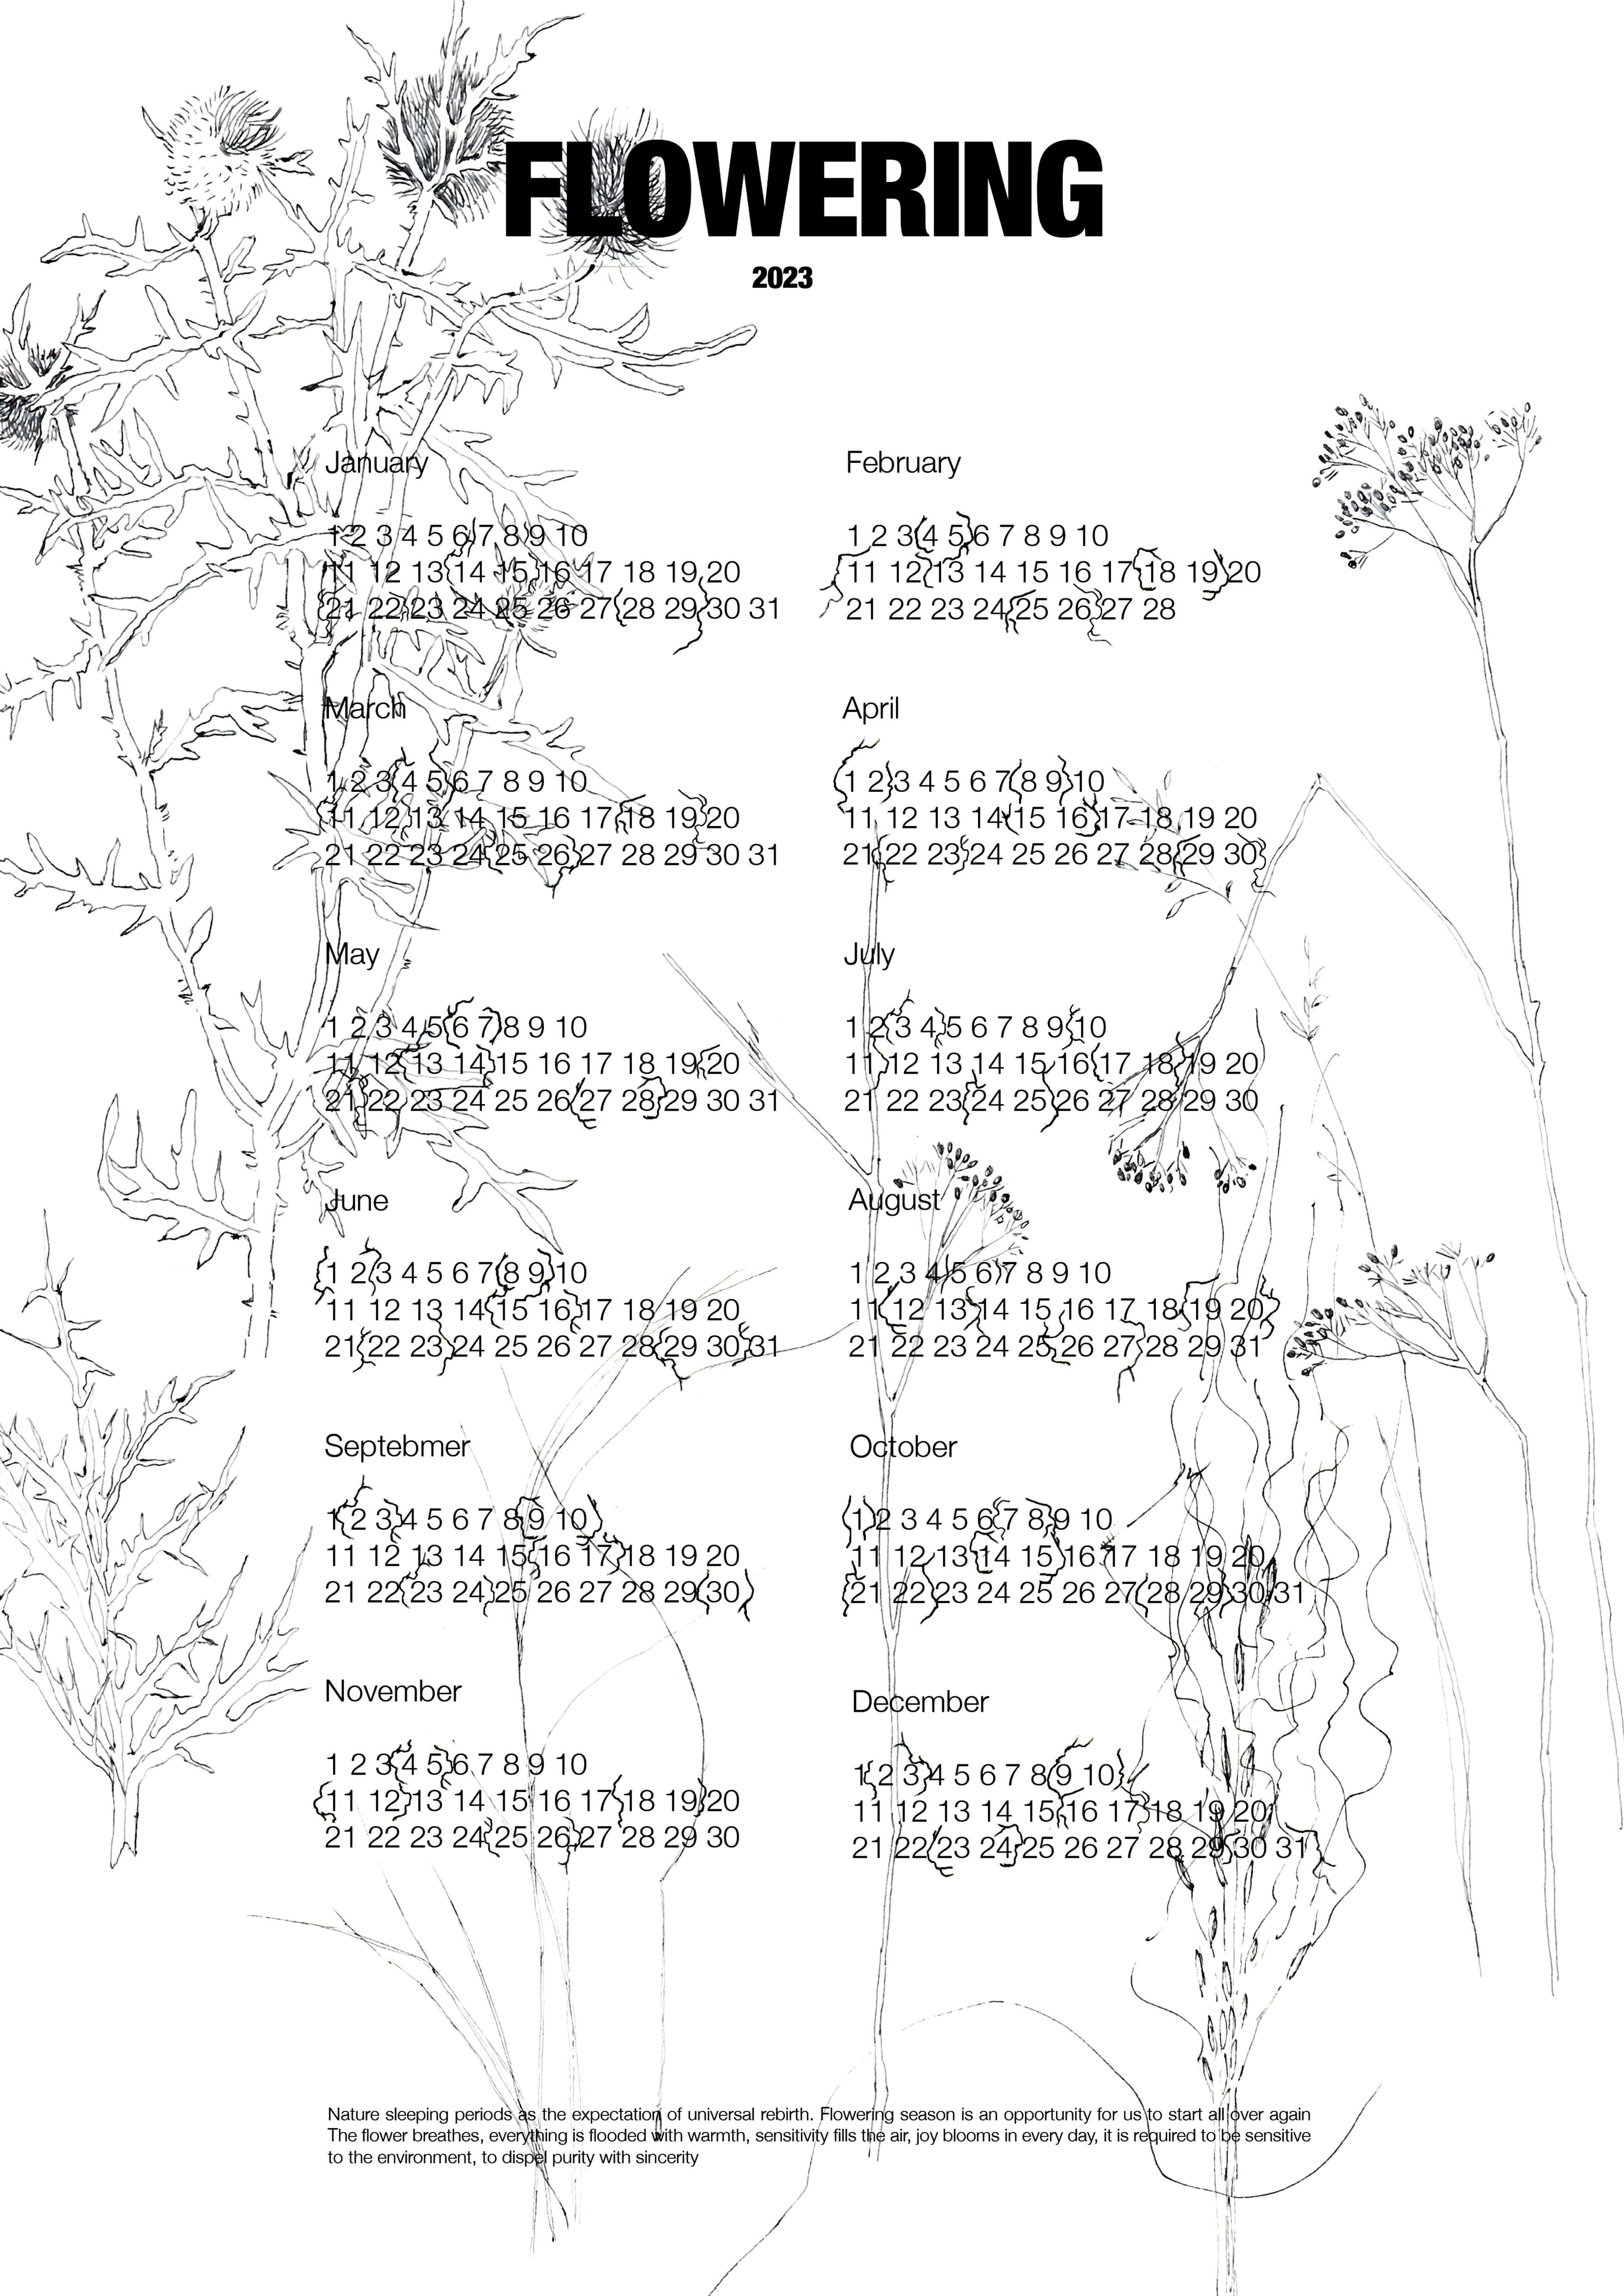 FLOWERING
2023
January
1 2 3 4 5 6 7 8 9 10
11 12 13 14 15 16 17 18 19 20
21 22 23 24 25 26 27 28 29 30 31
February
1 2 3 4 5 6 7 8 9 10
11 12 13 14 15 16 17 18 19 20
21 22 23 24 25 26 27 28
March
1 2 3 4 5 6 7 8 9 10
11 12 13 14 15 16 17 18 19 20
21 22 23 24 25 26 27 28 29 30 31
April
1 2 3 4 5 6 7 8 9 10
11 12 13 14 15 16 17 18 19 20
21 22 23 24 25 26 27 28 29 30
May
1 2 3 4 5 6 7 8 9 10
11 12 13 14 15 16 17 18 19 20
21 22 23 24 25 26 27 28 29 30 31
July
1 2 3 4 5 6 7 8 9 10
11 12 13 14 15 16 17 18 19 20
21 22 23 24 25 26 27 28 29 30
June
1 2 3 4 5 6 7 8 9 10
11 12 13 14 15 16 17 18 19 20
21 22 23 24 25 26 27 28 29 30 31
August
1 2 3 4 5 6 7 8 9 10
11 12 13 14 15 16 17 18 19 20
21 22 23 24 25 26 27 28 29 31
Septebmer
1 2 3 4 5 6 7 8 9 10
11 12 13 14 15 16 17 18 19 20
21 22 23 24 25 26 27 28 29 30
October
1 2 3 4 5 6 7 8 9 10
11 12 13 14 15 16 17 18 19 20
21 22 23 24 25 26 27 28 29 30 31
November
1 2 3 4 5 6 7 8 9 10
11 12 13 14 15 16 17 18 19 20
21 22 23 24 25 26 27 28 29 30
December
1 2 3 4 5 6 7 8 9 10
11 12 13 14 15 16 17 18 19 20
21 22 23 24 25 26 27 28 29 30 31
Nature sleeping periods as the expectation of universal rebirth. Flowering season is an opportunity for us to start all over again
The flower breathes, everything is flooded with warmth, sensitivity fills the air, joy blooms in every day, it is required to be sensitive
to the environment, to dispel purity with sincerity